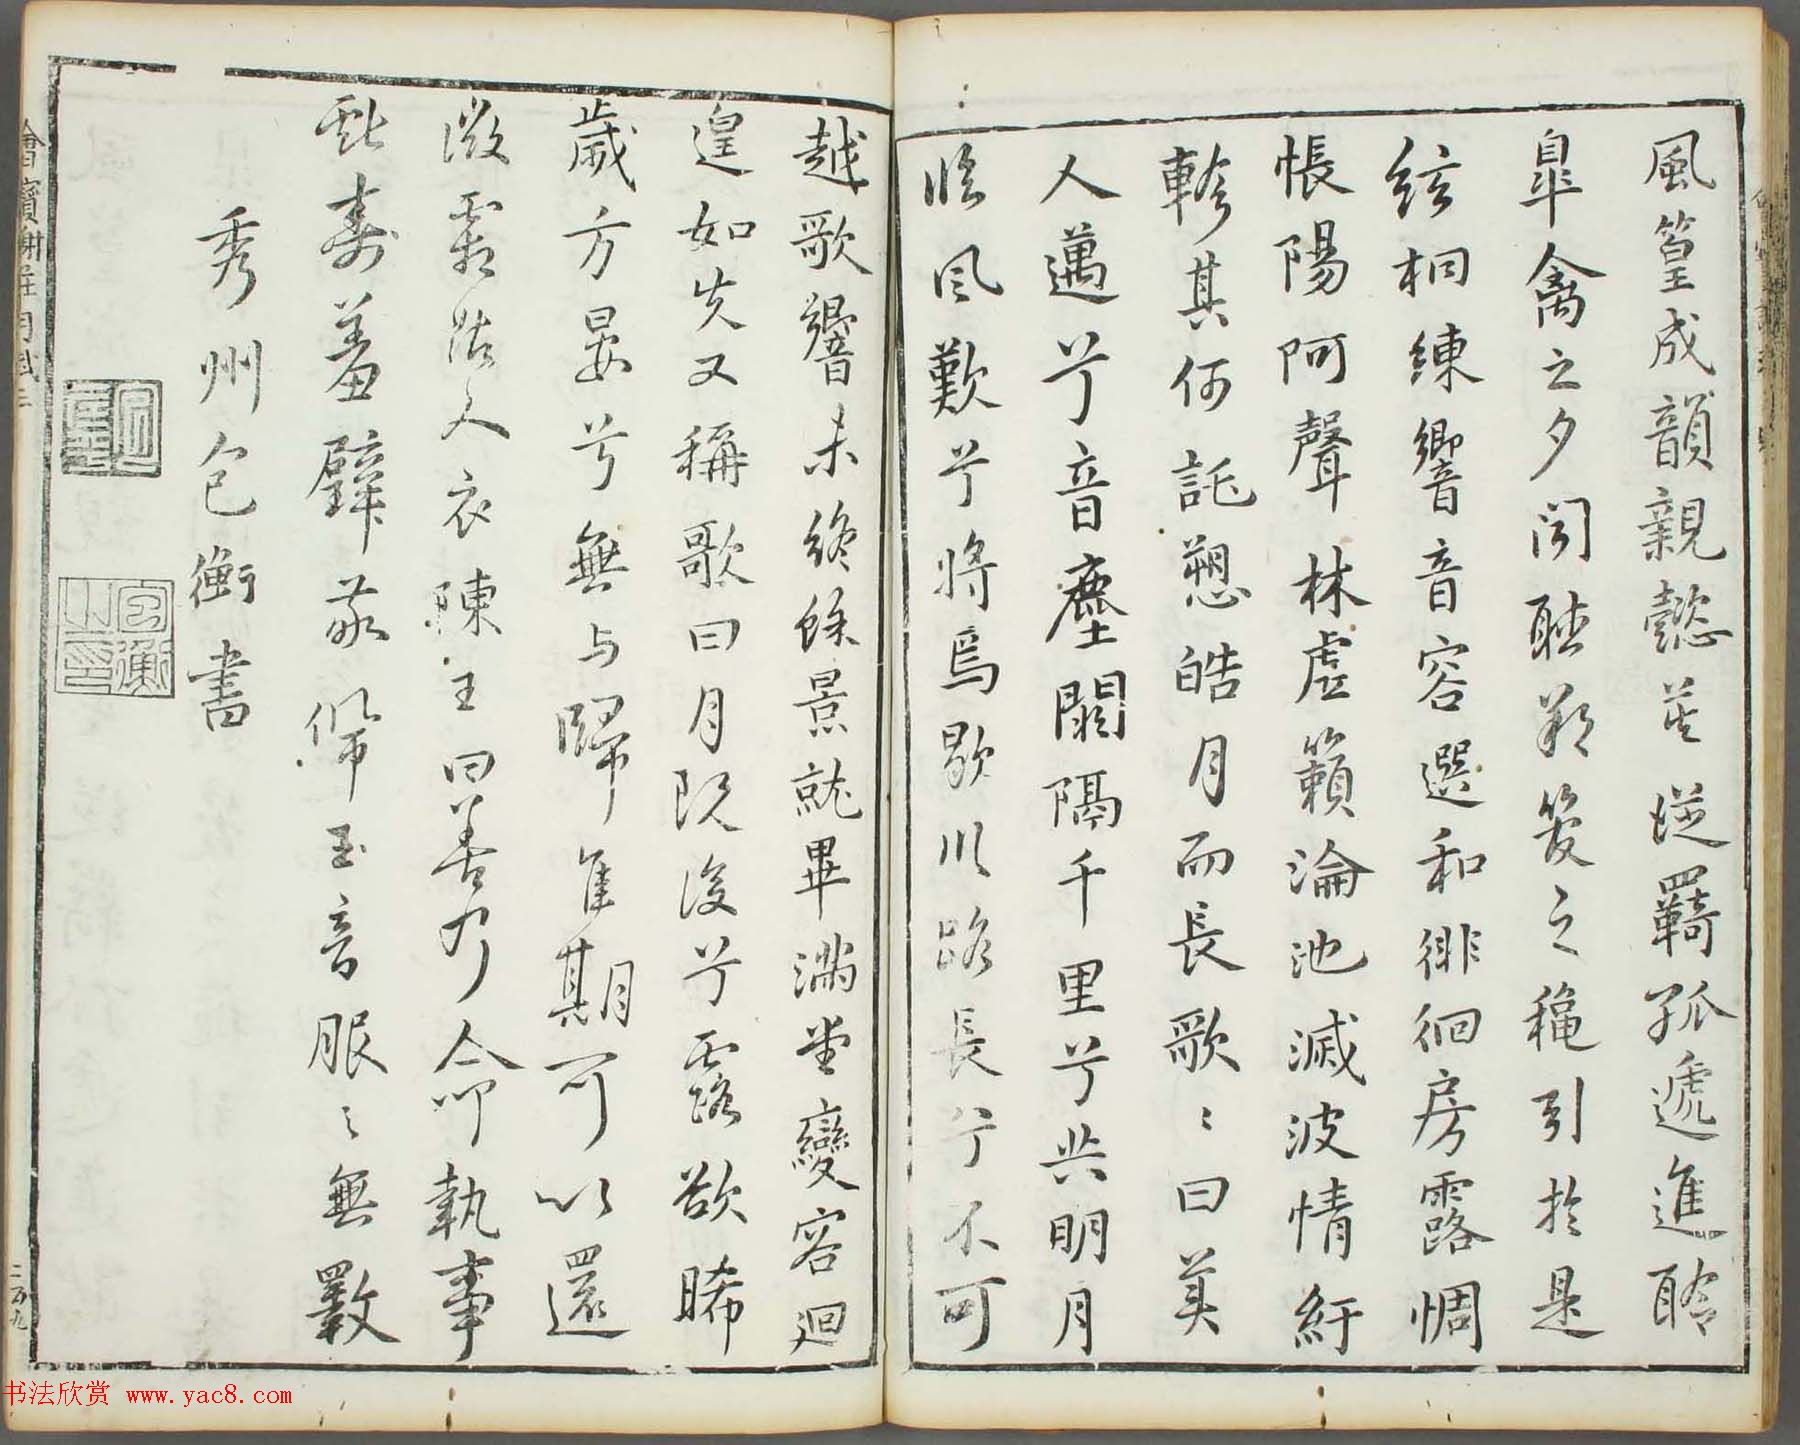 風篁成韻親懿莫從羈孤遞進聆
皐禽之夕聞聽朔管之穐引於是
絃桐練響音容選和徘徊房露惆
悵陽阿聲林虛籟淪池滅波情紆
軫其何託愬皓月而長歌〻曰美
人邁兮音塵闕隔千里兮共明月
臨風歎兮將焉歇川路長兮不可
越歌響未終餘景就畢滿堂變容迴
遑如失又稱歌曰月既沒兮露欲晞
歲方晏兮無与歸佳期可以還
微霜沾人衣陳王曰善乃命執事
獻壽羞璧敬佩玉音服之無斁
秀州包衡書
謝莊月賦三
二百九
书法欣赏 www.yac8.com